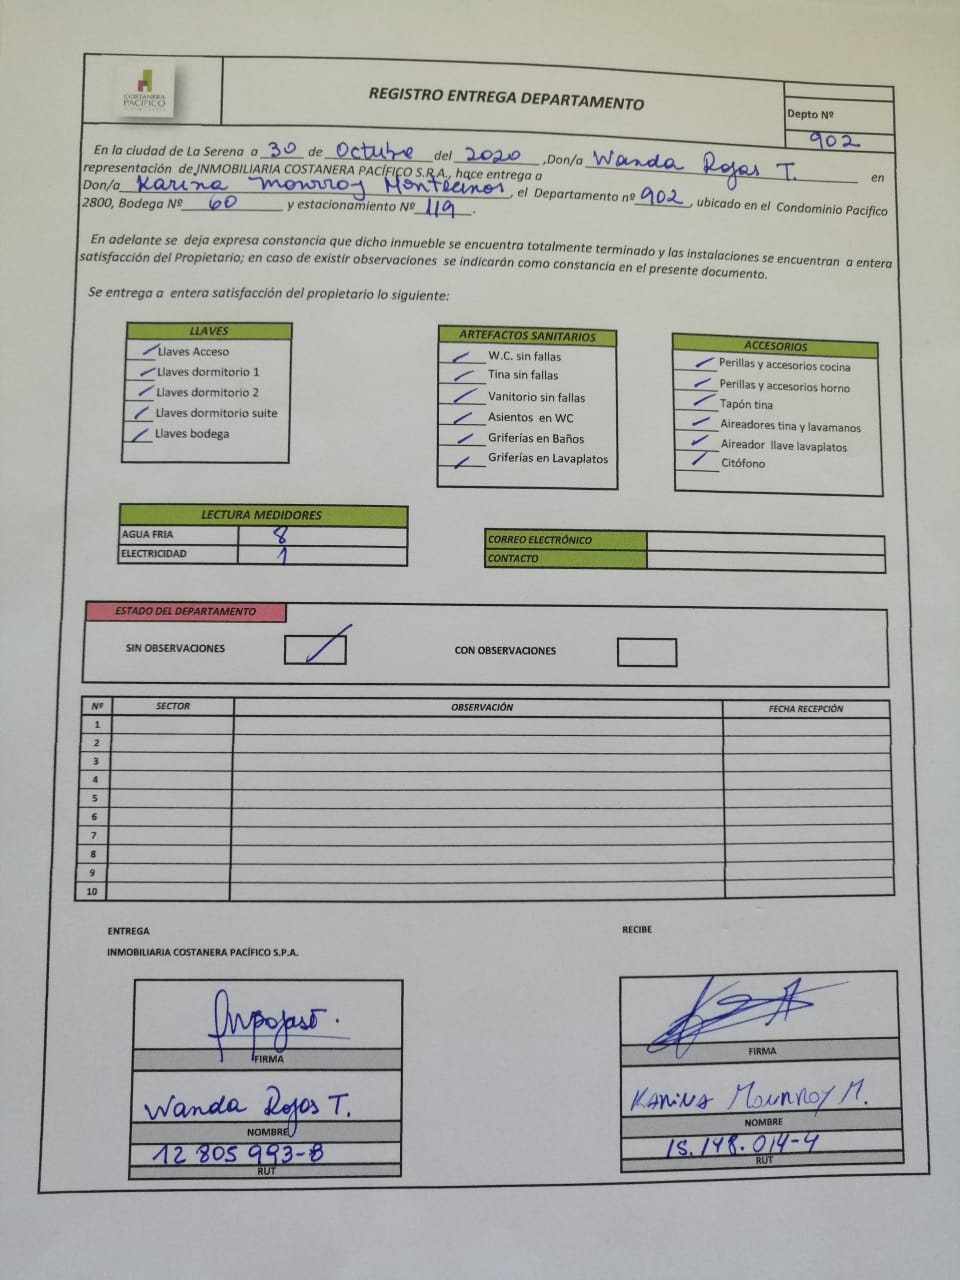 COSTANERA
PACÍFICO
REGISTRO ENTREGA DEPARTAMENTO
Depto Nº
902
En la ciudad de La Serena a 30 de Octubre del 2020 ,Don/a Wanda Rojas T. en
representación de INMOBILIARIA COSTANERA PACÍFICO S.R.A., hace entrega a
Don/a Karina Monrroy Montecinos, el Departamento nº 902, ubicado en el Condominio Pacifico
2800, Bodega Nº 60 y estacionamiento Nº 119.
En adelante se deja expresa constancia que dicho inmueble se encuentra totalmente terminado y las instalaciones se encuentran a entera
satisfacción del Propietario; en caso de existir observaciones se indicarán como constancia en el presente documento.
Se entrega a entera satisfacción del propietario lo siguiente:
LLAVES
Llaves Acceso
Llaves dormitorio 1
Llaves dormitorio 2
Llaves dormitorio suite
Llaves bodega
ARTEFACTOS SANITARIOS
W.C. sin fallas
Tina sin fallas
Vanitorio sin fallas
Asientos en WC
Griferías en Baños
Griferías en Lavaplatos
ACCESORIOS
Perillas y accesorios cocina
Perillas y accesorios horno
Tapón tina
Aireadores tina y lavamanos
Aireador llave lavaplatos
Citófono
LECTURA MEDIDORES
AGUA FRIA 8
ELECTRICIDAD 1
CORREO ELECTRÓNICO
CONTACTO
ESTADO DEL DEPARTAMENTO
SIN OBSERVACIONES
CON OBSERVACIONES
Nº SECTOR OBSERVACIÓN FECHA RECEPCIÓN
1
2
3
4
5
6
7
8
9
10
ENTREGA
INMOBILIARIA COSTANERA PACÍFICO S.P.A.
FIRMA
Wanda Rojas T.
NOMBRE
12 805 993-8
RUT
RECIBE
FIRMA
Karina Monrroy M.
NOMBRE
15.148.014-4
RUT